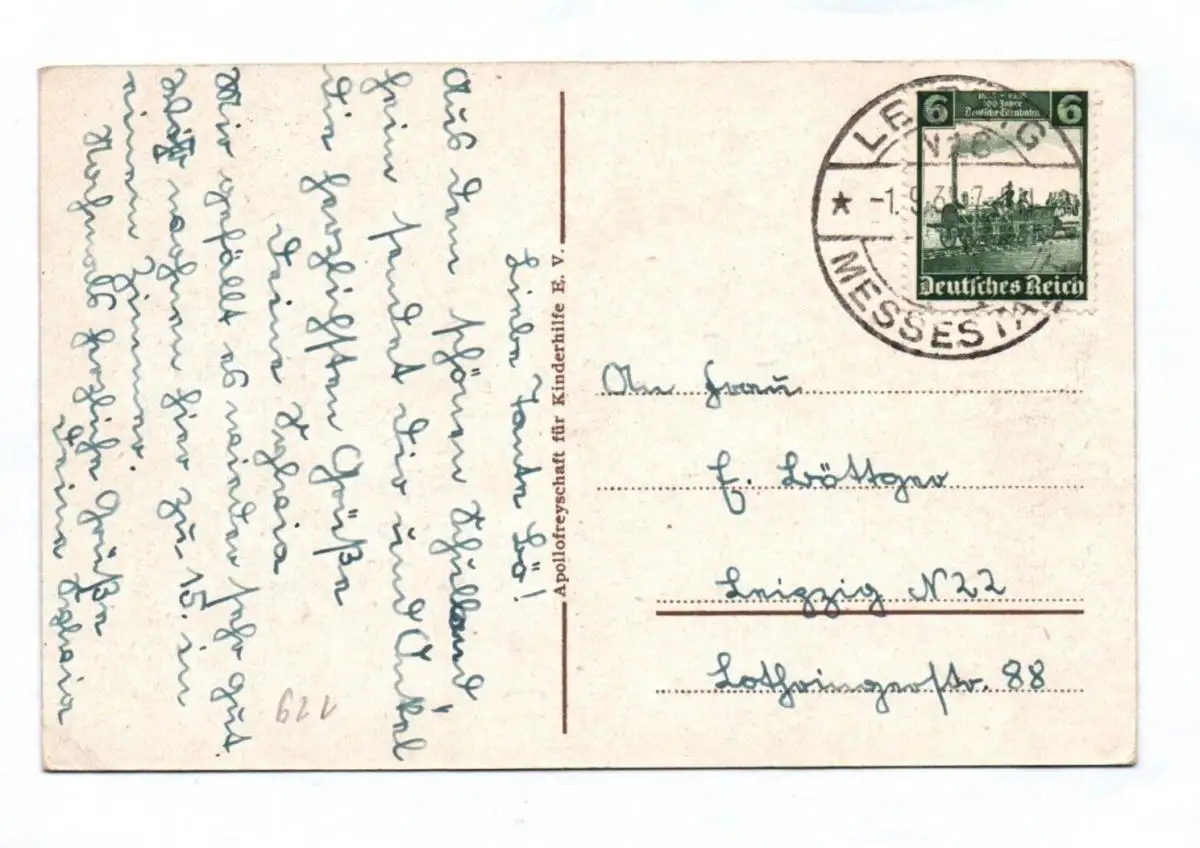 Liebe Tante Bö!
Aus dem schönen Schulland-
heim sendet dir und Onkel
die herzlichsten Grüße
Deine
Mir gefällt es wieder sehr gut.
wohnen hier zu 15 in
einem Zimmer.
Nochmals herzliche Grüße
Deine
622
Apollofreyschaft für Kinderhilfe E. V.
LEIPZIG
MESSESTADT
6 6
1835 - 1935
100 Jahre
Deutsche Eisenbahn
Deutsches Reich
An Frau
E. Böttger
Leipzig N 22
Lothringerstr. 88